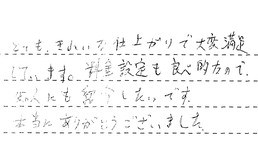 とても、きれいな仕上がりで大変満足
しています。料金設定も良心的なので、
知人にも紹介したいです。
本当にありがとうございました。